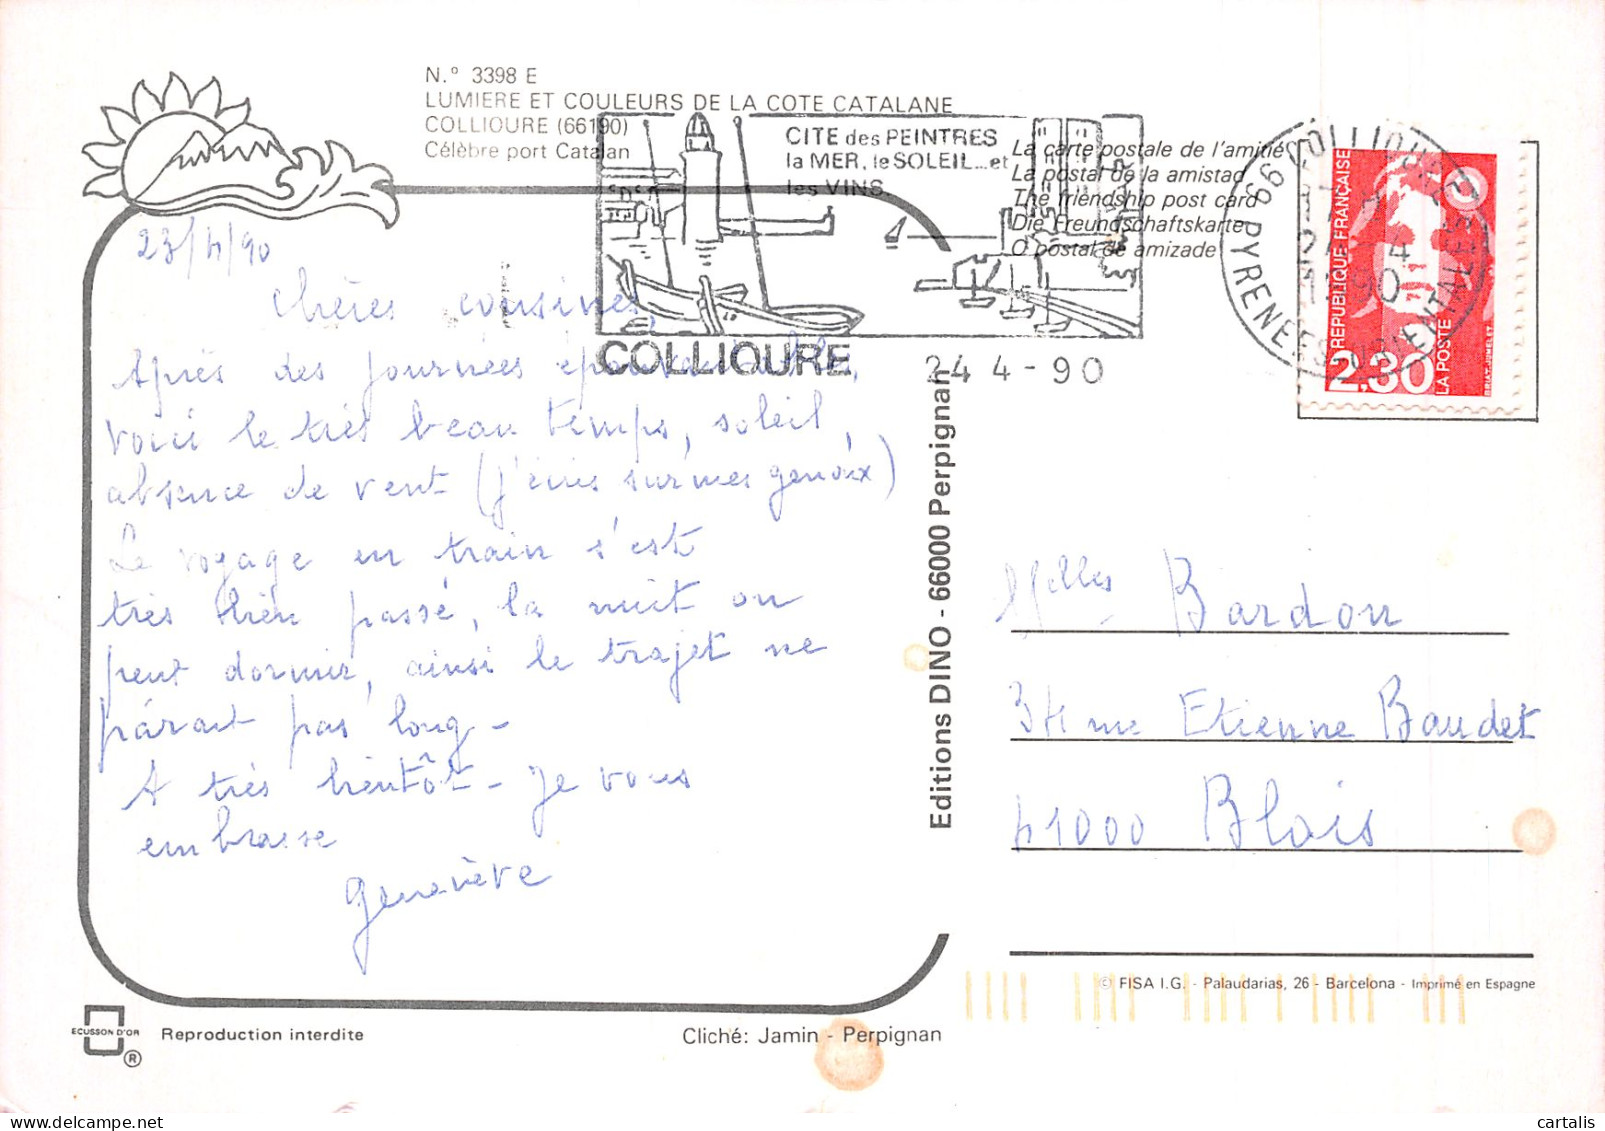 N.° 3398 E
LUMIERE ET COULEURS DE LA COTE CATALANE
COLLIOURE (66190)
Célèbre port Catalan
CITE des PEINTRES
la MER, le SOLEIL...et
les VINS
COLLIOURE
244-90
La carte postale de l'amitié
La postal de la amistad
The friendship post card
Die Freundschaftskarte
O postal de amizade
66 COLLIOURE
PYRENEES ORIENTALES
24-4
1990
REPUBLIQUE FRANÇAISE
2,30
LA POSTE
BRIAT-JUMELET
23/4/90
Chères cousines,
Après des journées épouvantables,
voici le très beau temps, soleil,
absence de vent (j'écris sur mes genoux)
Le voyage en train s'est
très bien passé, la nuit on
peut dormir, ainsi le trajet ne
parait pas long -
A très bientôt - Je vous
embrasse
Geneviève
Editions DINO - 66000 Perpignan
Melles Bardon
Etienne Baudet
41000 Blois
© FISA I.G. - Palaudarias, 26 - Barcelona - Imprimé en Espagne
ECUSSON D'OR
®
Reproduction interdite
Cliché: Jamin - Perpignan
cartalis